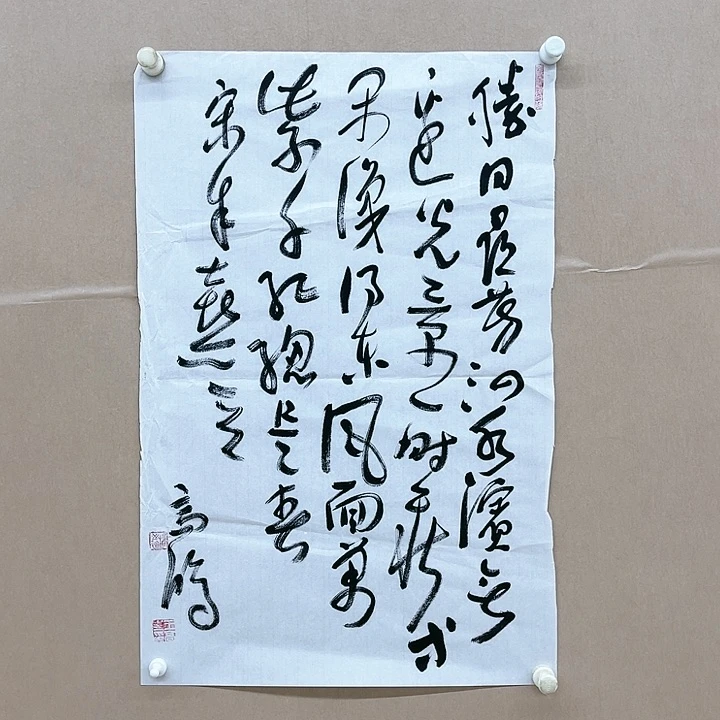 勝日尋芳泗水濱無
邊光景一時新等
閒識得東風面萬
紫千紅總是春
宋朱熹
高